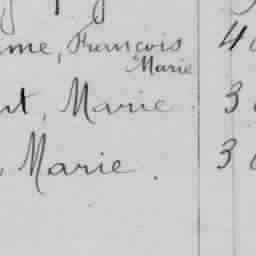 me, François 4
Marie
nt, Marie 3
, Marie. 3